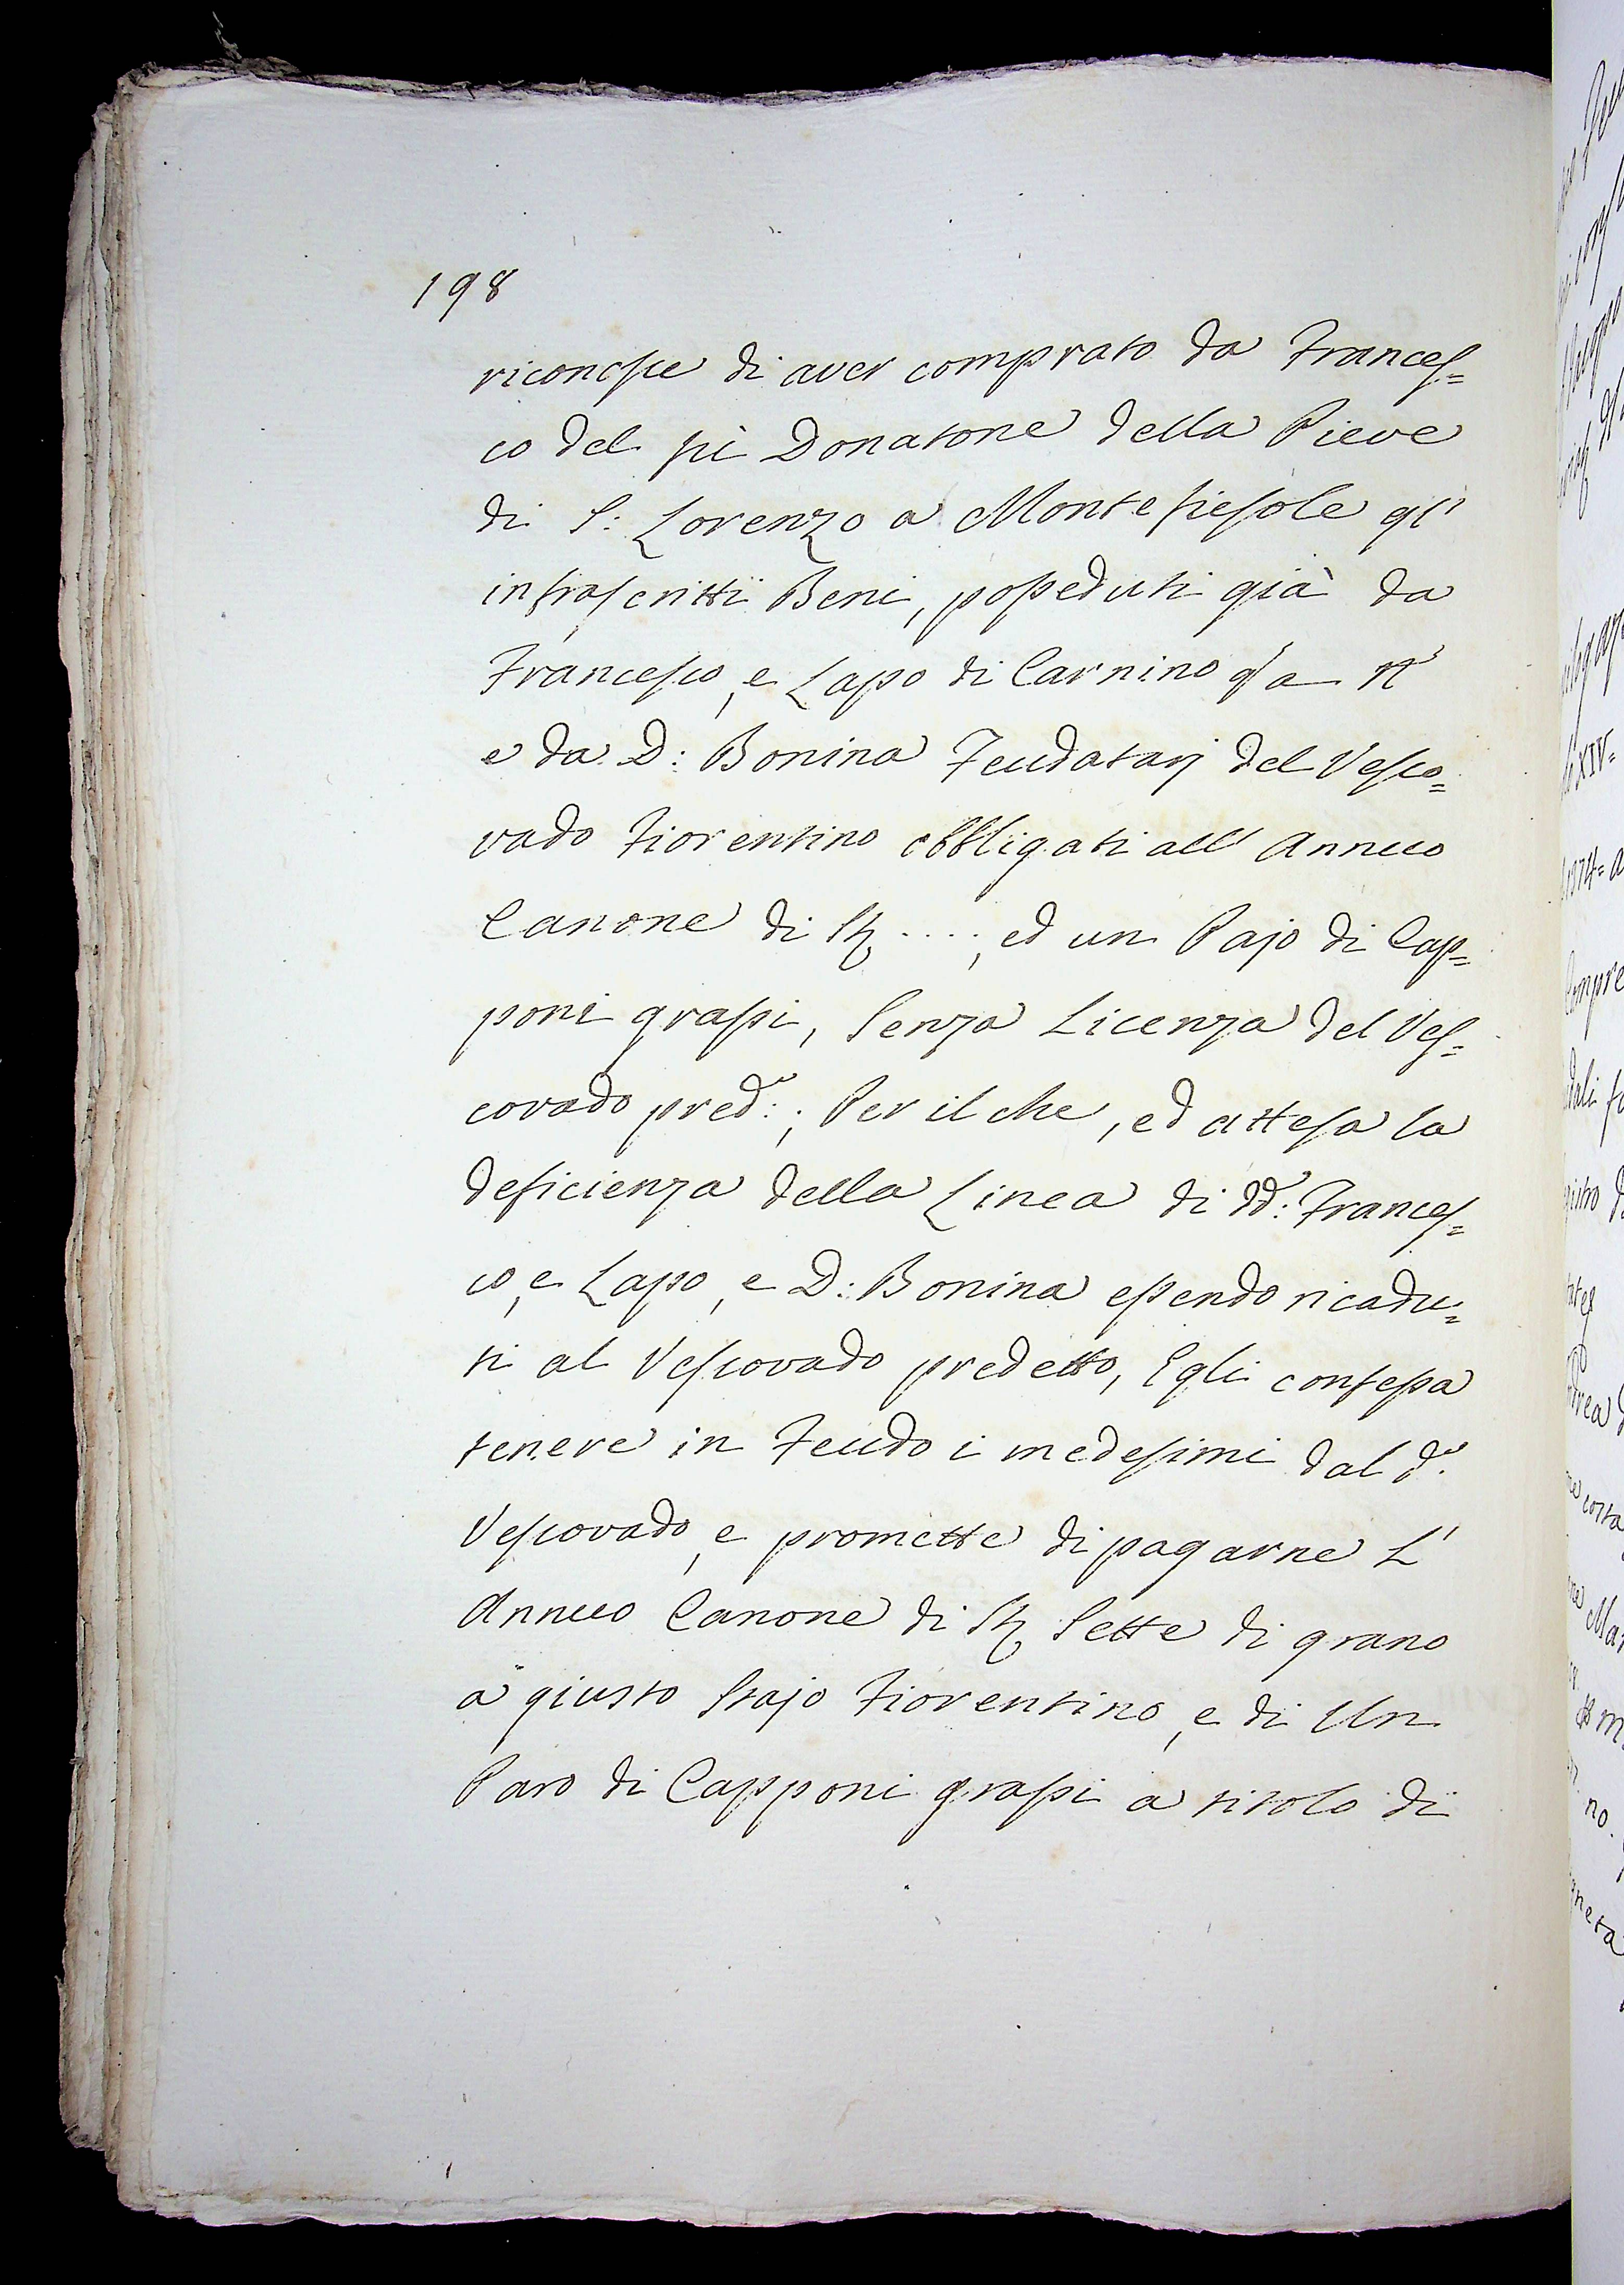 198
riconosce di aver comprato da Frances=
co del fù Donatone della Pieve
di S: Lorenzo a Montefiesole gl'
infrascritti Beni, posseduti già da
Francesco, e Lapo di Carnino
e da D: Bonina Feudatarj del Vesco=
vado Fiorentino obbligati all' Annuo
Canone di St ...., ed un Pajo di Cap=
poni grassi, Senza Licenza del Ves=
covado pred:º; Per il che, ed attesa la
deficienza della Linea di dd:ⁱ Frances=
co, e Lapo, e D: Bonina essendo ricadu=
ti al Vescovado predetto, Egli confessa
tenere in Feudo i medesimi dal d:º
Vescovado, e promette di pagarne L'
Annuo Canone di St Sette di grano
a giusto Stajo Fiorentino, e di Un
Paro di Capponi grassi a titolo di